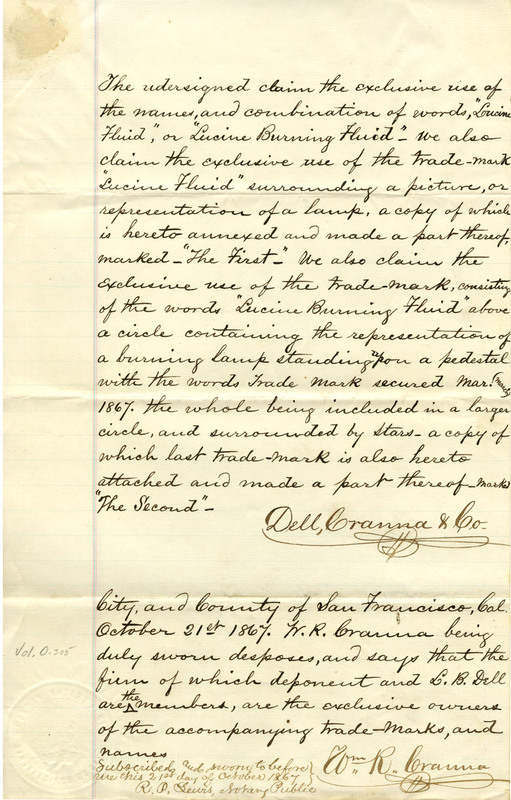 The udersigned claim the exclusive use of
the names, and combination of words, "Lucine
Fluid", or "Lucine Burning Fluid"- We also
claim the exclusive use of the trade-mark
"Lucine Fluid" surrounding a picture, or
representation of a lamp, a copy of which
is hereto annexed and made a part thereof,
marked-"The First-" We also claim the
exclusive use of the trade-mark, consisting
of the words "Lucine Burning Fluid" above
a circle containing the representation of
a burning lamp standing upon a pedestal
with the words Trade Mark secured Mar. (March)
1867. the whole being included in a larger
circle, and surrounded by stars- a copy of
which last trade-mark is also hereto
attached and made a part thereof-marked
"The Second"-
Dell, Cranna & Co-
City, and County of San Francisco, Cal.
October 21st 1867. W. R. Cranna being
duly sworn desposes, and says that the
firm of which deponent and C. B. Dell
are the members, are the exclusive owners
of the accompanying trade-marks, and
names
Vol. 0.305
Subscribed and sworn to before
me this 21st day of October 1867
R. P. Lewis, Notary Public
Wm R. Cranna